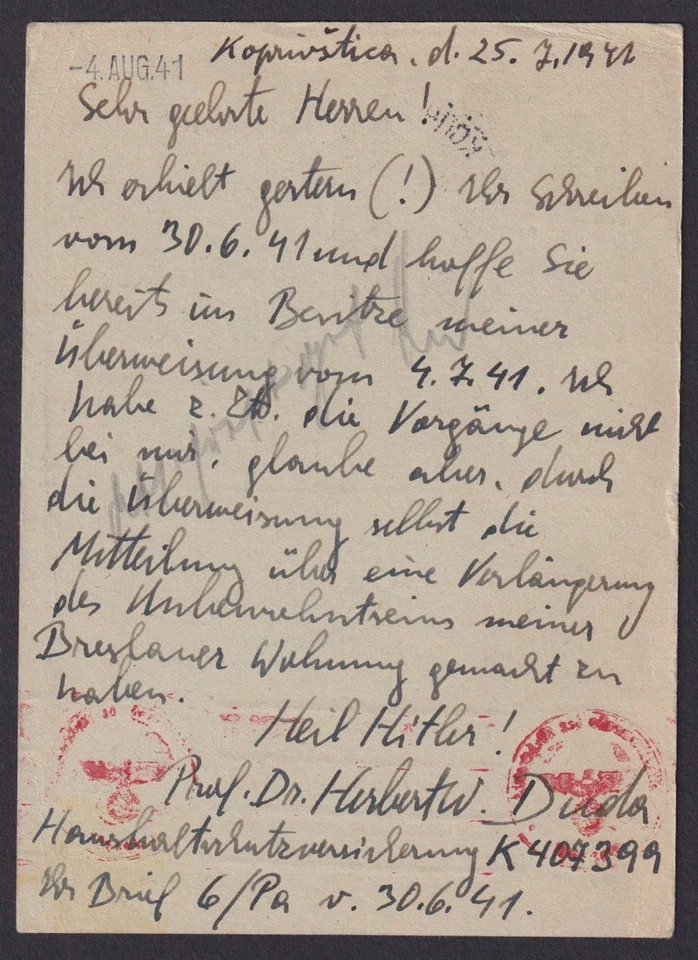 -4. AUG. 41
Koprivštica, d. 25. 7. 1941
Sehr geehrte Herren!
Ich erhielt gestern (!) Ihr Schreiben
vom 30.6.41 und hoffe Sie
bereits im Besitze meiner
Überweisung vom 4.7.41. Ich
habe z. Zt. die Vorgänge nicht
bei mir, glaube aber, durch
die Überweisung selbst die
Mitteilung über eine Verlängerung
des Unbewohntseins meiner
Breslauer Wohnung gemacht zu
haben.
Heil Hitler!
Prof. Dr. Herbert W. Duda
Haushaltschutzversicherung K 407399
Ihr Brief 6/Pa v. 30.6.41.